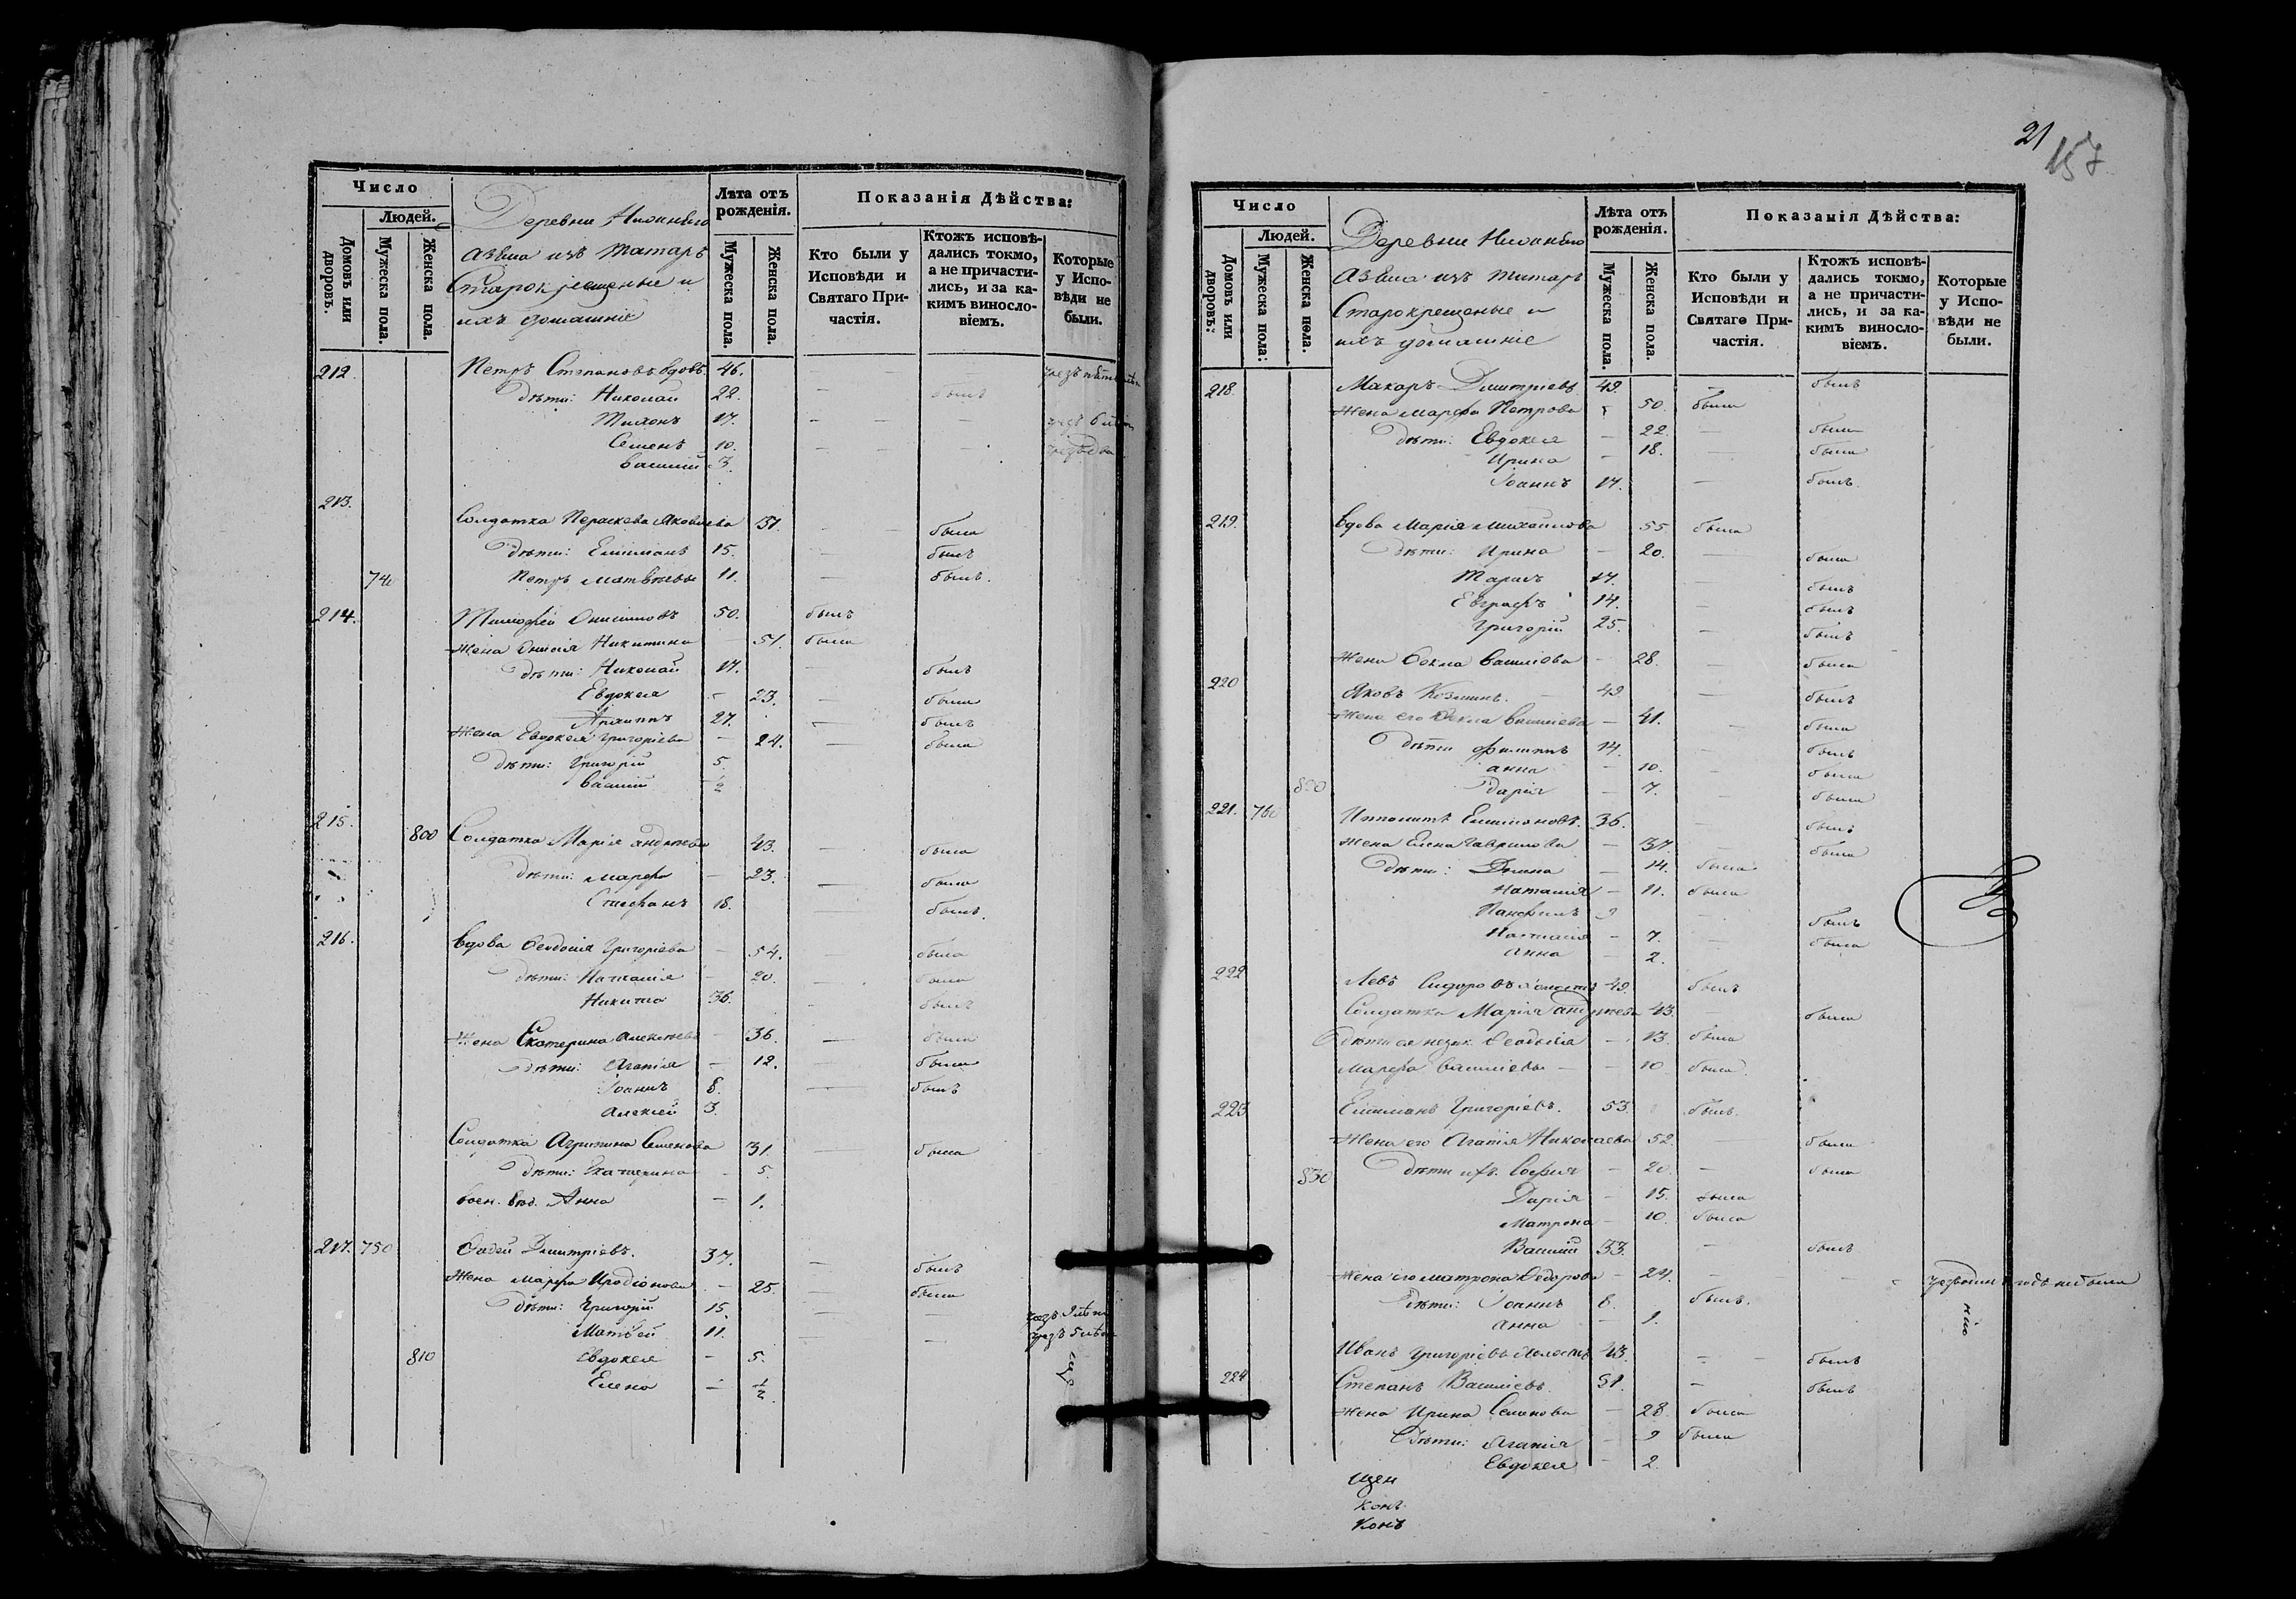 Число
Людей.
Домовъ или дворовъ.
Мужеска пола.
Женска пола.
Деревни
Азяка изъ татаръ
Старокрещеные и
ихъ домашніе
Лѣта отъ рожденія.
Мужеска пола.
Женска пола.
Показанія Дѣйства:
Кто были у Исповѣди и Святаго Причастія.
Ктожъ исповѣдались токмо, а не причастились, и за какимъ винословіемъ.
Которые у Исповѣди не были.
212. Петръ Степановъ вдовъ. 46.
Дѣти: Николай 22. былъ
Тихонъ 17.
Семенъ 10.
Василій 3.
213.
Солдатка Параскева Яковлева 31. была
Дѣти: Емилианъ 15. былъ
740 Петръ Матвѣевы 11. былъ.
214. Тимофей Онисимовъ 50. былъ
Жена Никитина 51. была
Дѣти: Николай 17. былъ
Евдокея 23. была
Архиппъ 27. былъ
Жена Евдокея Григоріева 24. была
Дѣти: Григорій 5.
Василій ½
215. 800 Солдатка Марія Андреева 43. была
Дѣти: Марфа 23. была
Стефанъ 18. былъ.
216. Вдова Феодосія Григоріева 54. была
Дѣти: Наталія 20. была
Никита 36. былъ
Жена Екатерина Алексѣева 36. была
Дѣти: Агапія 12. была
Іоаннъ 8. былъ
Алексѣй 3.
Солдатка Агрипина Семенова 31. была
Дѣти: Екатерина 5.
воен. вѣд. Анна 1.
217. 750 Фадей Димитріевъ. 37. былъ
Жена Марфа Иродіонова 25. была
Дѣти: Григорій 15. чрезъ лѣта
Матвей 11. чрезъ 5 лѣта
810 Евдокея 5.
Елена ½
21
157
Число
Людей.
Домовъ или дворовъ:
Мужеска пола:
Женска пола.
Деревни
Азяка изъ татаръ
Старокрещеные и
ихъ домашніе
Лѣта отъ рожденія.
Мужеска пола.
Женска пола.
Показанія Дѣйства:
Кто были у Исповѣди и Святаго Причастія.
Ктожъ исповѣдались токмо, а не причастились, и за какимъ винословіемъ.
Которые у Исповѣди не были.
218. Макаръ Димитріевъ 49. былъ
Жена Марфа Петрова 50. была
Дѣти: Евдокея 22. была
Ирина 18. была
Іоаннъ 17. былъ.
219. Вдова Марія Михайлова 55. была
Дѣти: Ирина 20. была
Тарасъ 17. былъ
Евграфъ 14. былъ
Григорій 25. былъ
Жена Фекла Василіова 28. была
220 Яковъ Козминъ. 49 былъ
Жена его Фекла Василіева 41. была
Дѣти Филиппъ 14. былъ
Анна 10. была
820 Дарія 7. была
221. 760 Ипполитъ Емилиановъ. 36. былъ
Жена Елена Гаврилова 37. была
Дѣти: Домна 14. была
Наталія 11. была
Панфилъ 9 былъ
Наталія 7. была
Анна 2.
222 Левъ Сидоровъ холостъ 49. былъ
Солдатка Марія Андреева 43. была
Дѣти ея незак. Феодосія 13. была
Марфа Василіевы 10 была.
223 Емилианъ Григоріевъ. 53. былъ.
Жена его Агапія Николаева 52. была
830 Дѣти ихъ. Софія 20. была
Дарія 15. была
Матрона 10. была
Василій 33. былъ
Жена его Матрона Федорова 24.
Дѣти: Іоаннъ 8. былъ.
Анна 1.
Иванъ Григоріевъ холостъ 43. былъ
224 Степанъ Василіевъ. 31. былъ
Жена Ирина Семенова 28. была
Дѣти: Агапія 9 была
Евдокея 2.